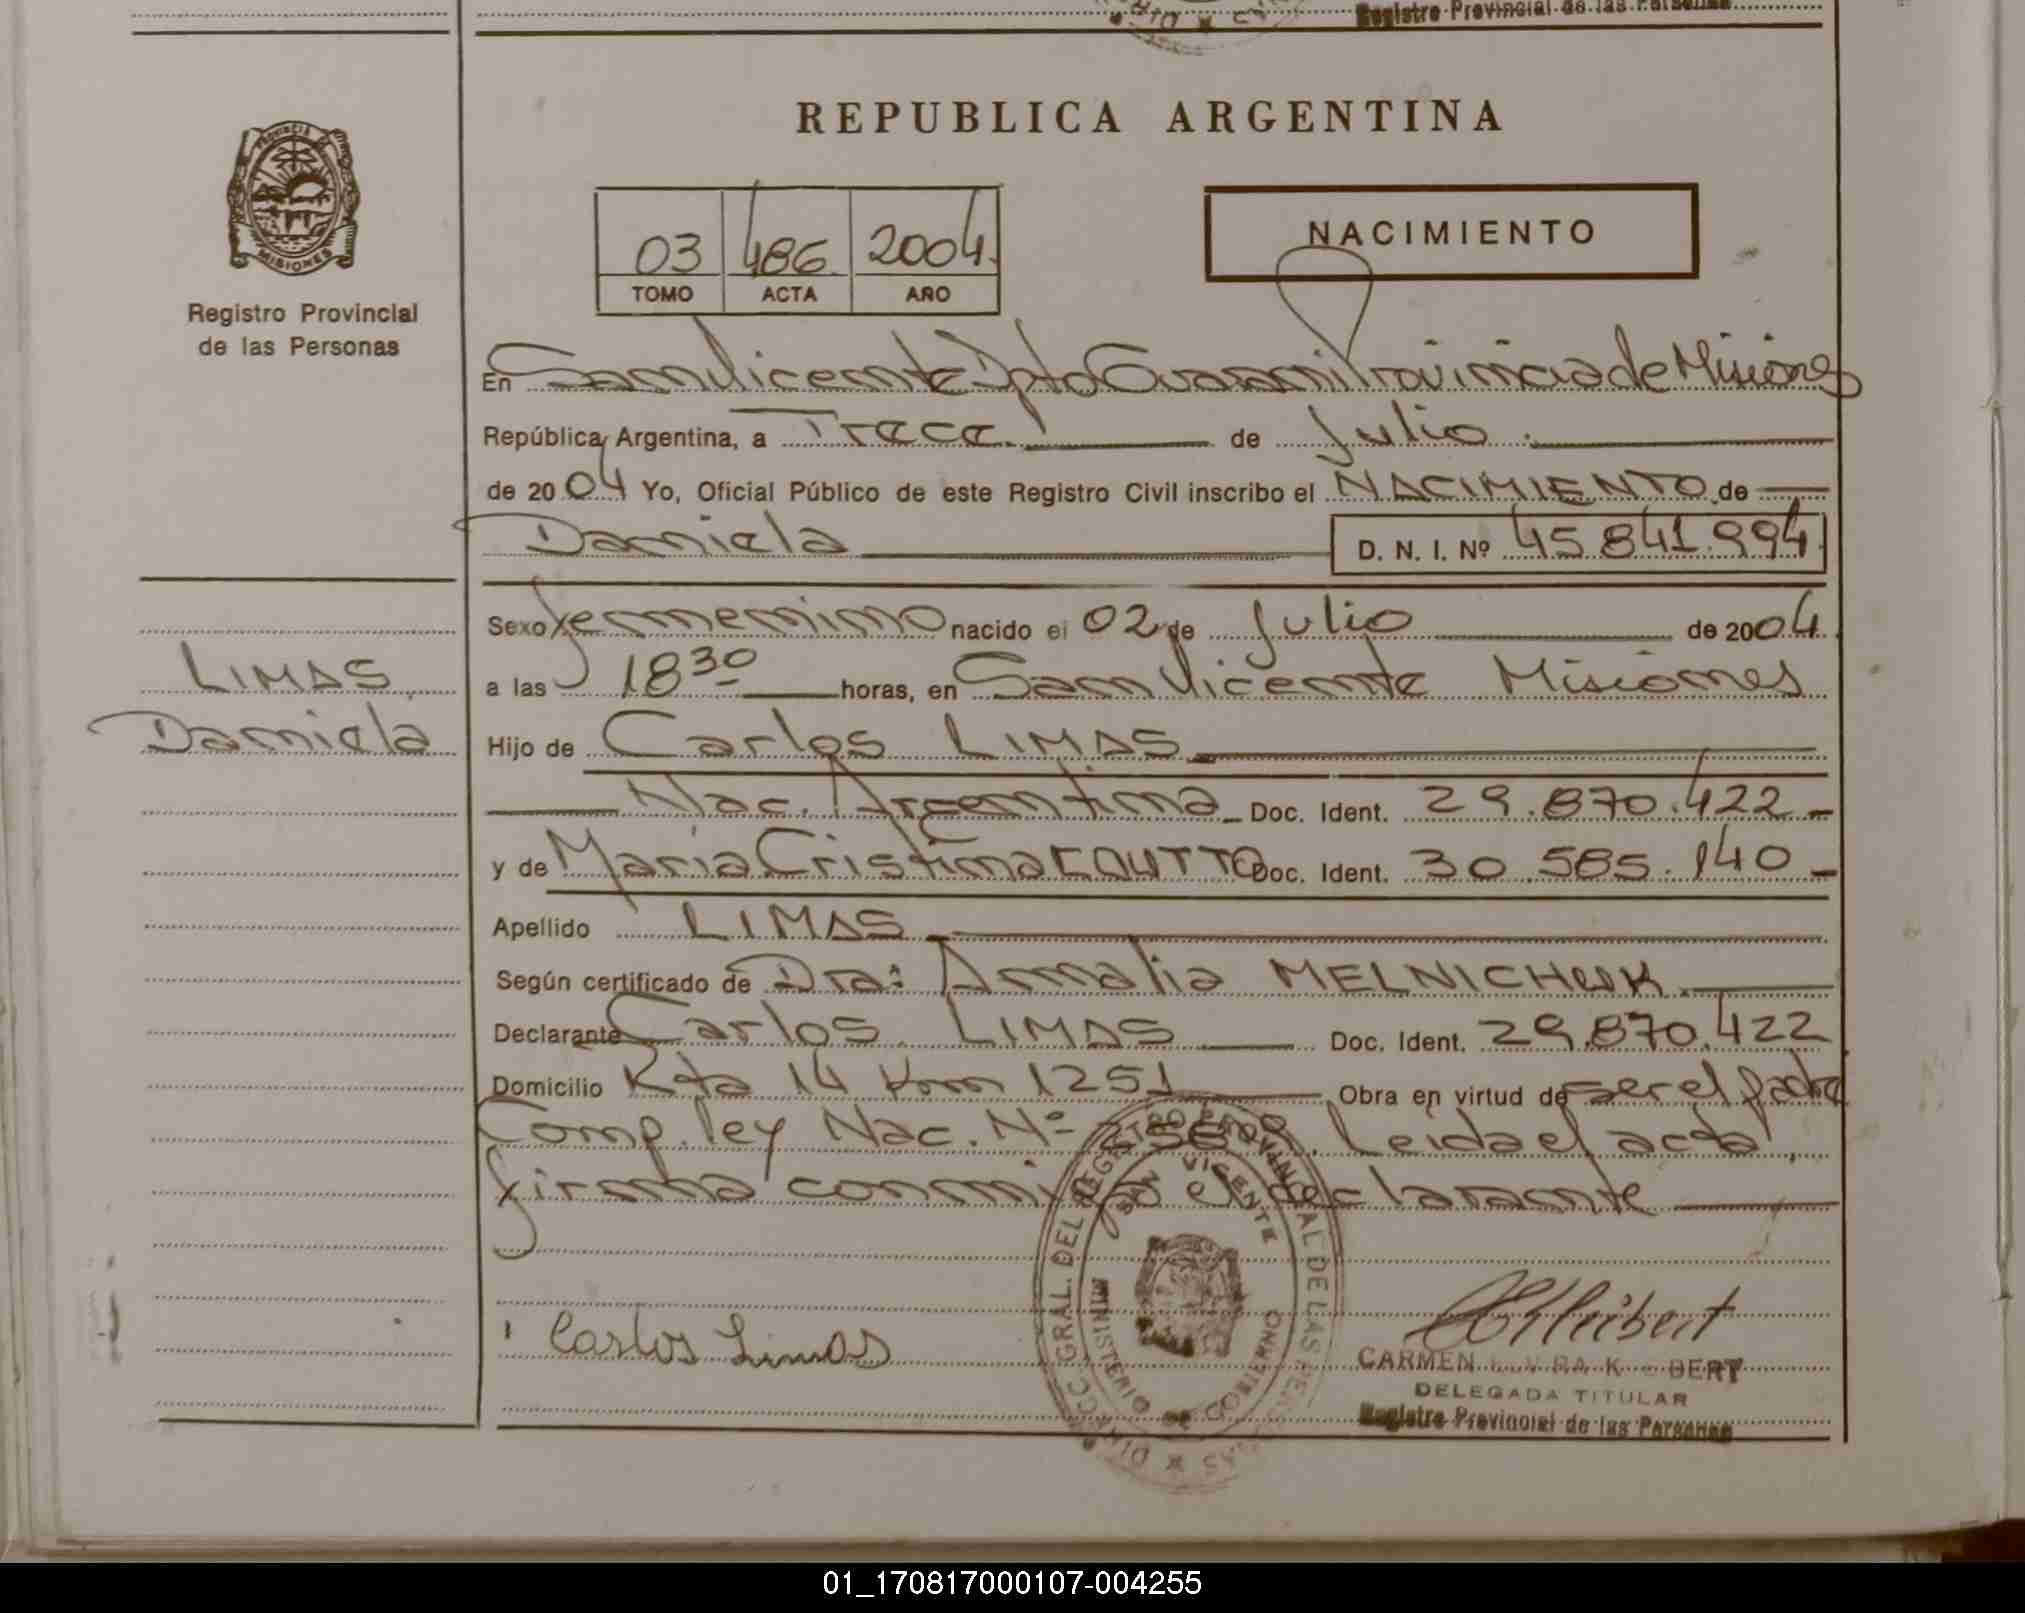 Registro Provincial de las Personas
REPUBLICA ARGENTINA
PROVINCIA DE
MISIONES
Registro Provincial
de las Personas
03 486 2004
TOMO ACTA AÑO
NACIMIENTO
En San Vicente Dpto Guarani Provincia de Misiones
República Argentina, a Trece de Julio
de 2004 Yo, Oficial Público de este Registro Civil inscribo el NACIMIENTO de
Daniela D. N. I. Nº 45.841.994
Sexo femenino nacido el 02 de Julio de 2004
LIMAS
a las 18 30 horas, en San Vicente Misiones
Daniela
Hijo de Carlos LIMAS
Nac. Argentina Doc. Ident. 29.870.422
y de Maria Cristina COUTTO Doc. Ident. 30.585.140
Apellido LIMAS
Según certificado de Dra: Amalia MELNICHUK
Declarante Carlos LIMAS Doc. Ident. 29.870.422
Domicilio Rta 14 Km 1251 Obra en virtud de ser el padre
Comp. ley Nac. Nº Leida el acta
firma conmigo el declarante
DIRECC. GRAL. DEL REGISTRO PROVINCIAL DE LAS PERSONAS
SAN VICENTE
MINISTERIO DE GOBIERNO
Carlos Limas
CARMEN
DELEGADA TITULAR
Registro Provincial de las Personas
01_170817000107-004255